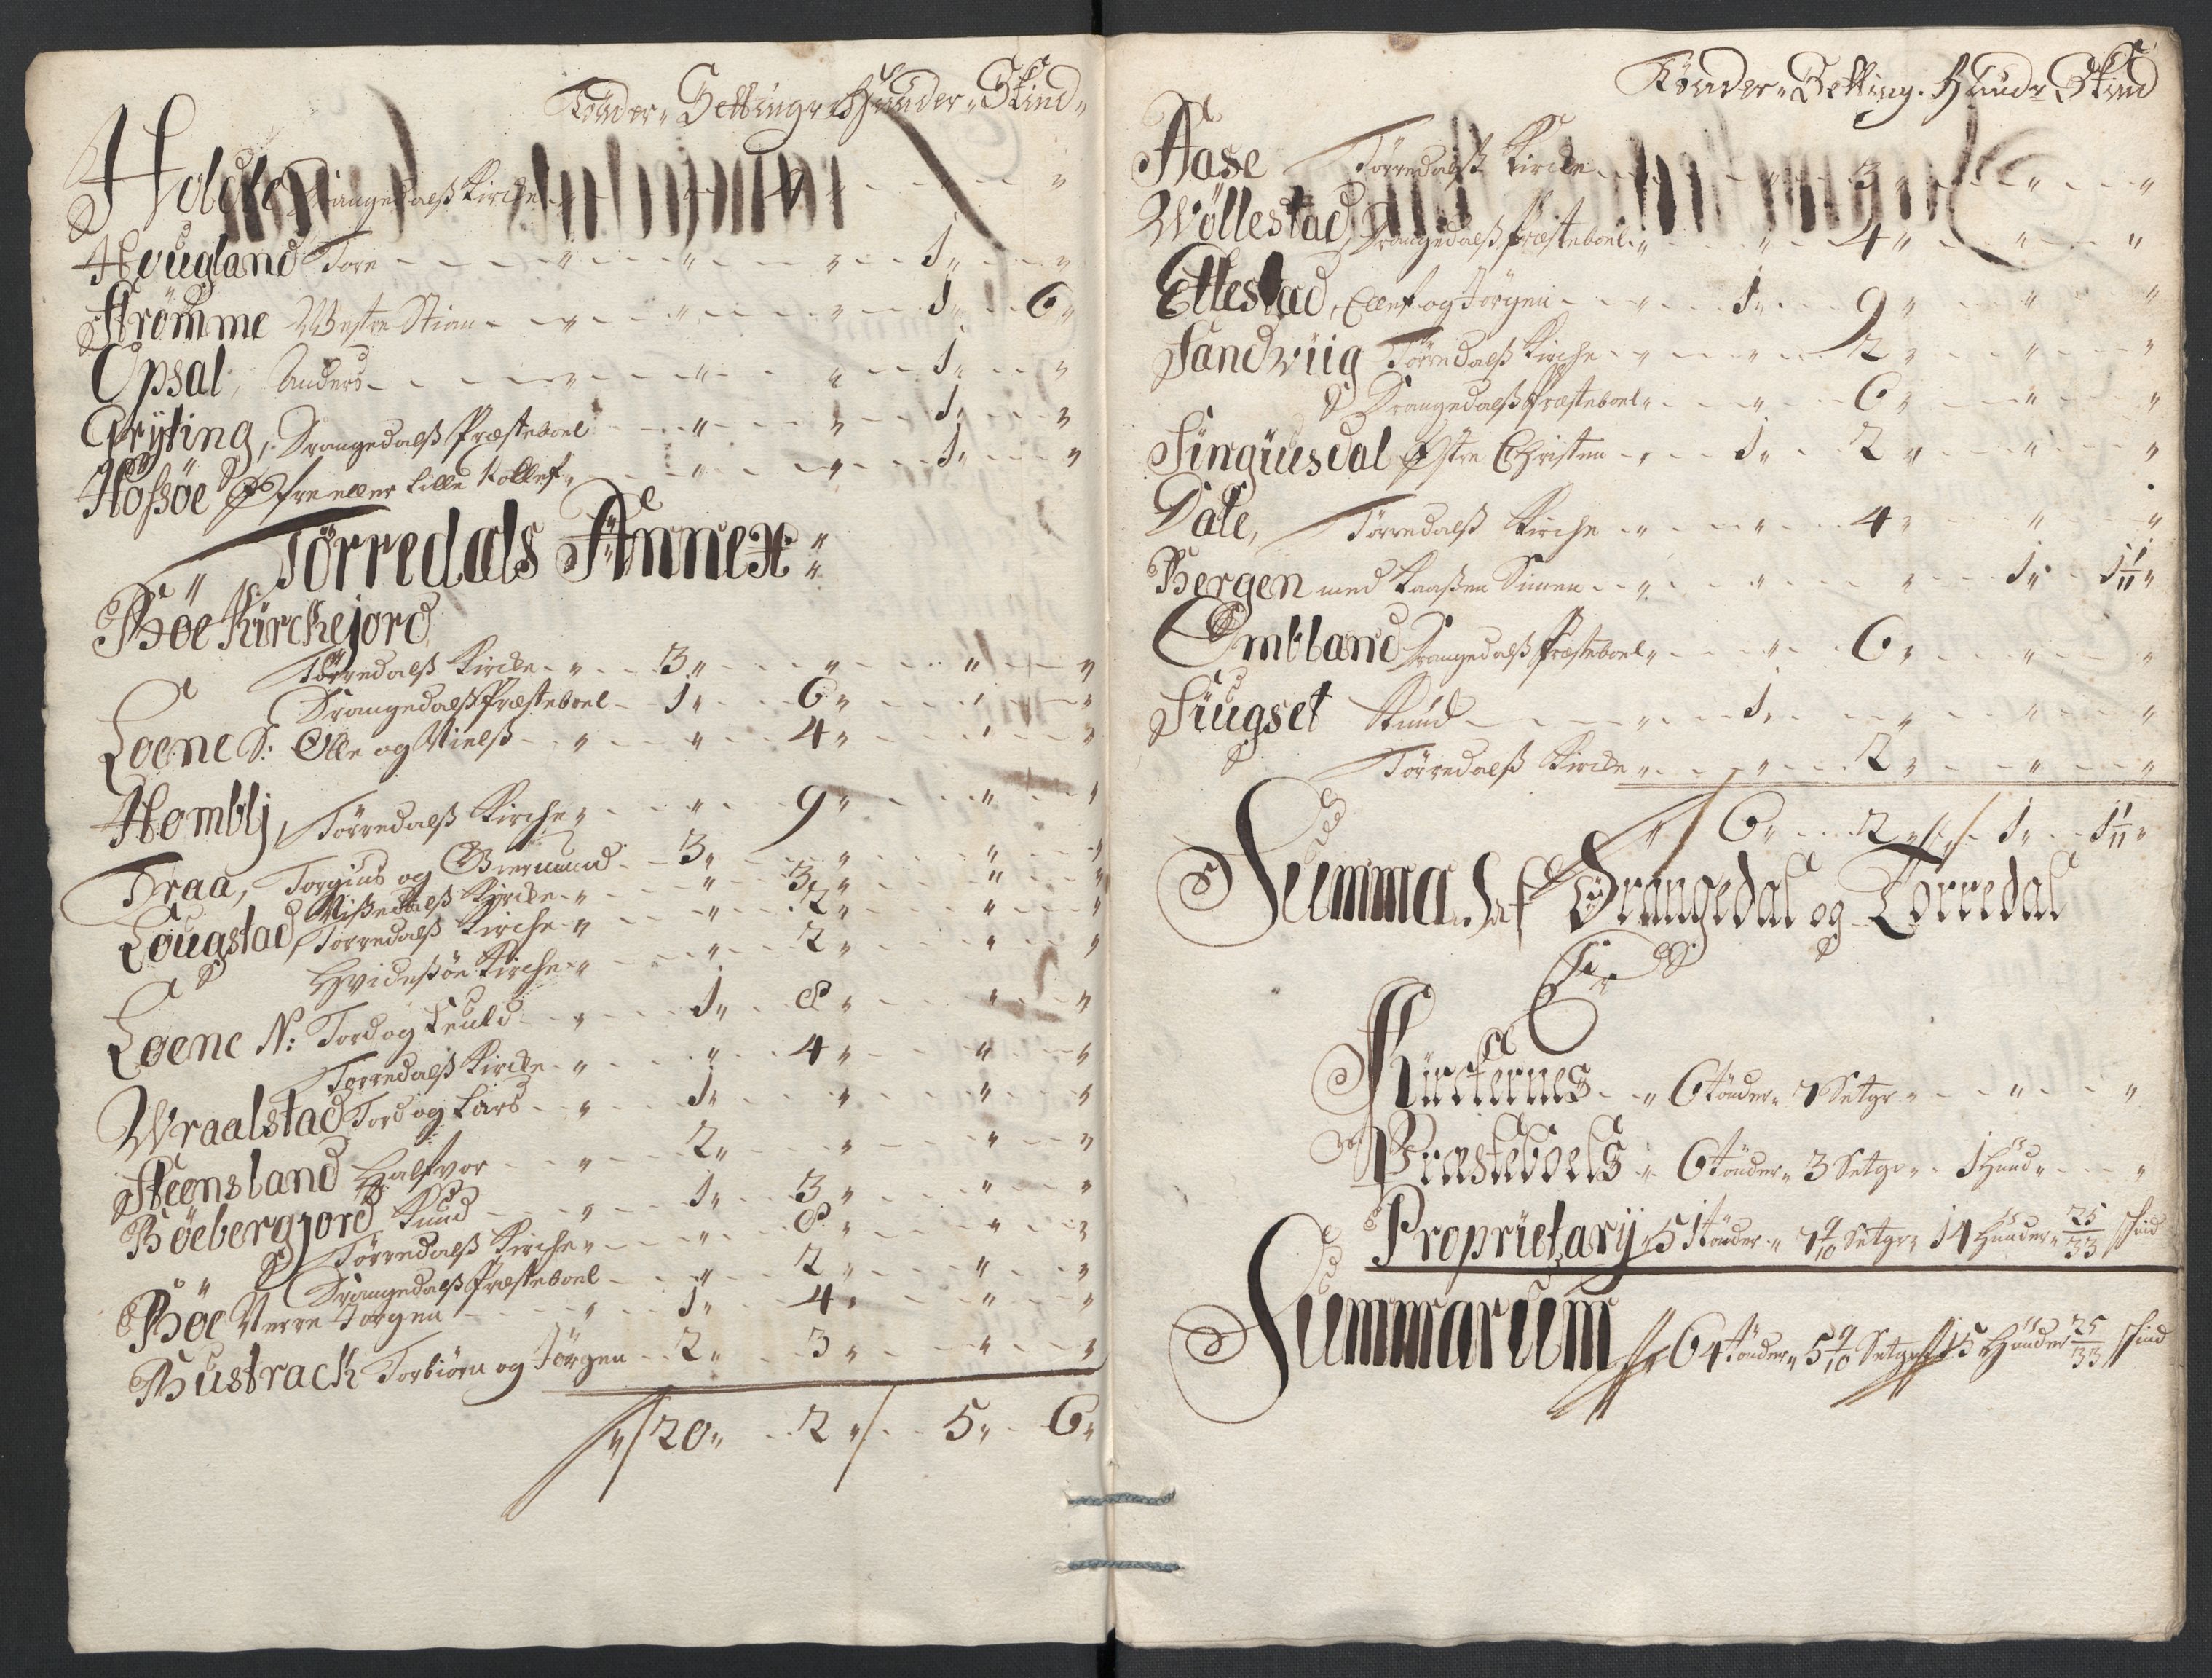 Tönder„ Setting„ Hunder„ Skind„
Holcke Drangedalß Kircke „ „ „
Hougland Tore „ „ „ 1„ „
Strömme Westre Stian „ „ „ 1„ 6„
Opsal, Anders „ „ „ 1„ „
Gryting, Drangedalß Præsteboel „ „ 1„ „
Hoßöe Øfre eller Lille Rollef „ „ „ 1„ „
Törredals Annex
Böe Kirckejord
Törredalß Kircke „ 3„ „ „ „
Drangedalß Præsteboel 1„ 6„ „ „
Loene S: Olle og Nielß „ „ 4„ „ „
Hombly, Törredalß Kirche „ „ 9„ „ „
Traa, Torgius og Giermund 3„ „ „ „
Lougstad, Nißedalß Kircke „ „ 3„ „ „
Törredalß Kirche „ „ 2„ „ „
Hvideßöe Kirche „ „ 2„ „ „
Loene N: Tord og Leuld „ 1„ 8„ „ „
Törredalß Kircke „ „ 4„ „ „
Wraalstad Tord og Lars „ 1„ „ „ „
Steensland Halfvor „ 2„ „ „ „
Böebergjord Knud „ 1„ 3„ „ „
Törredalß Kirche „ „ 8„ „ „
Drangedalß Præsteboel „ 2„ „ „
Böe Nerre Jörgen „ 1„ 4„ „ „
Bustrack Torbiörn og Jörgen 2„ 3„ „ „
„ 20„ 2„ 5„ 6„
Tönder„ Setting. Hundr Skind
Aase Törredalß Kircke „ 3„ „ „
Wöllestad, Drangedalß Præsteboel „ „ 4„ „ „
Ellestad, Ellef og Jörgen „ 1„ 9„ „ „
Sandviig Törredalß Kirche „ „ 2„ „ „
Drangedalß Præsteboel „ „ 6„ „ „
Singuesdal Østre Christen „ 1„ 2„ „ „
Dale, Törredalß Kirche „ „ 4„ „ „
Bergen med Kaaßen Simen „ „ „ 1„ 1 1/11„
Embland Drangedalß Præsteboel „ „ 6„ „ „
Siugset Knud „ 1„ „ „ „
Törredalß Kircke „ „ 2„ „ „
„ 6„ 2„ 1„ 1 1/11„
Summa af Drangedal og Törredal
Er
Kirckernes „ 6 Tönder„ 7 Setgr„ „ „
Præsteboels „ 6 Tönder„ 3 Setgr„ 1 Hund„ „
Proprietarij „ 51 Tönder„ 7 9/10 Setgr„ 14 Hunder„ 25/33 skind
Summarum 64 Tönder„ 5 9/10 Setgr 15 Hunder 25/33 skind